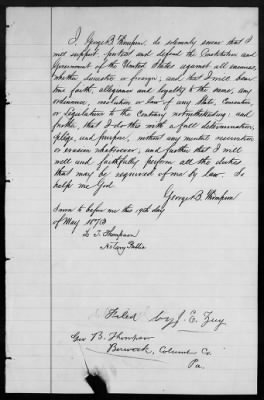 I, George B. Thompson, do solemnly swear that I
will support, protect and defend the Constitution and
Government of the United States against all enemies,
whether domestic or foreign; and that I will bear
true faith, allegiance and loyalty to the same, any
ordinance, resolution or law of any State, Convention
or Legislature to the contrary notwithstanding; and
further, that I do this with a full determination,
pledge, and purpose, without any mental reservation
or evasion whatsoever; and further that I will
well and faithfully perform all the duties
that may be required of me by law. So
help me God.
George B. Thompson
Sworn to before me this 19th day
of May 1873
Thompson
Notary Public
by J. E.
Geo B. Thompson
Berwick, Columbia Co.
Pa.